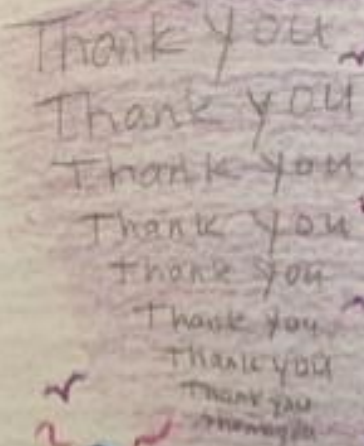 Thank you
Thank you
Thank you
Thank you
Thank you
Thank you
Thank you
Thank you
Thank you